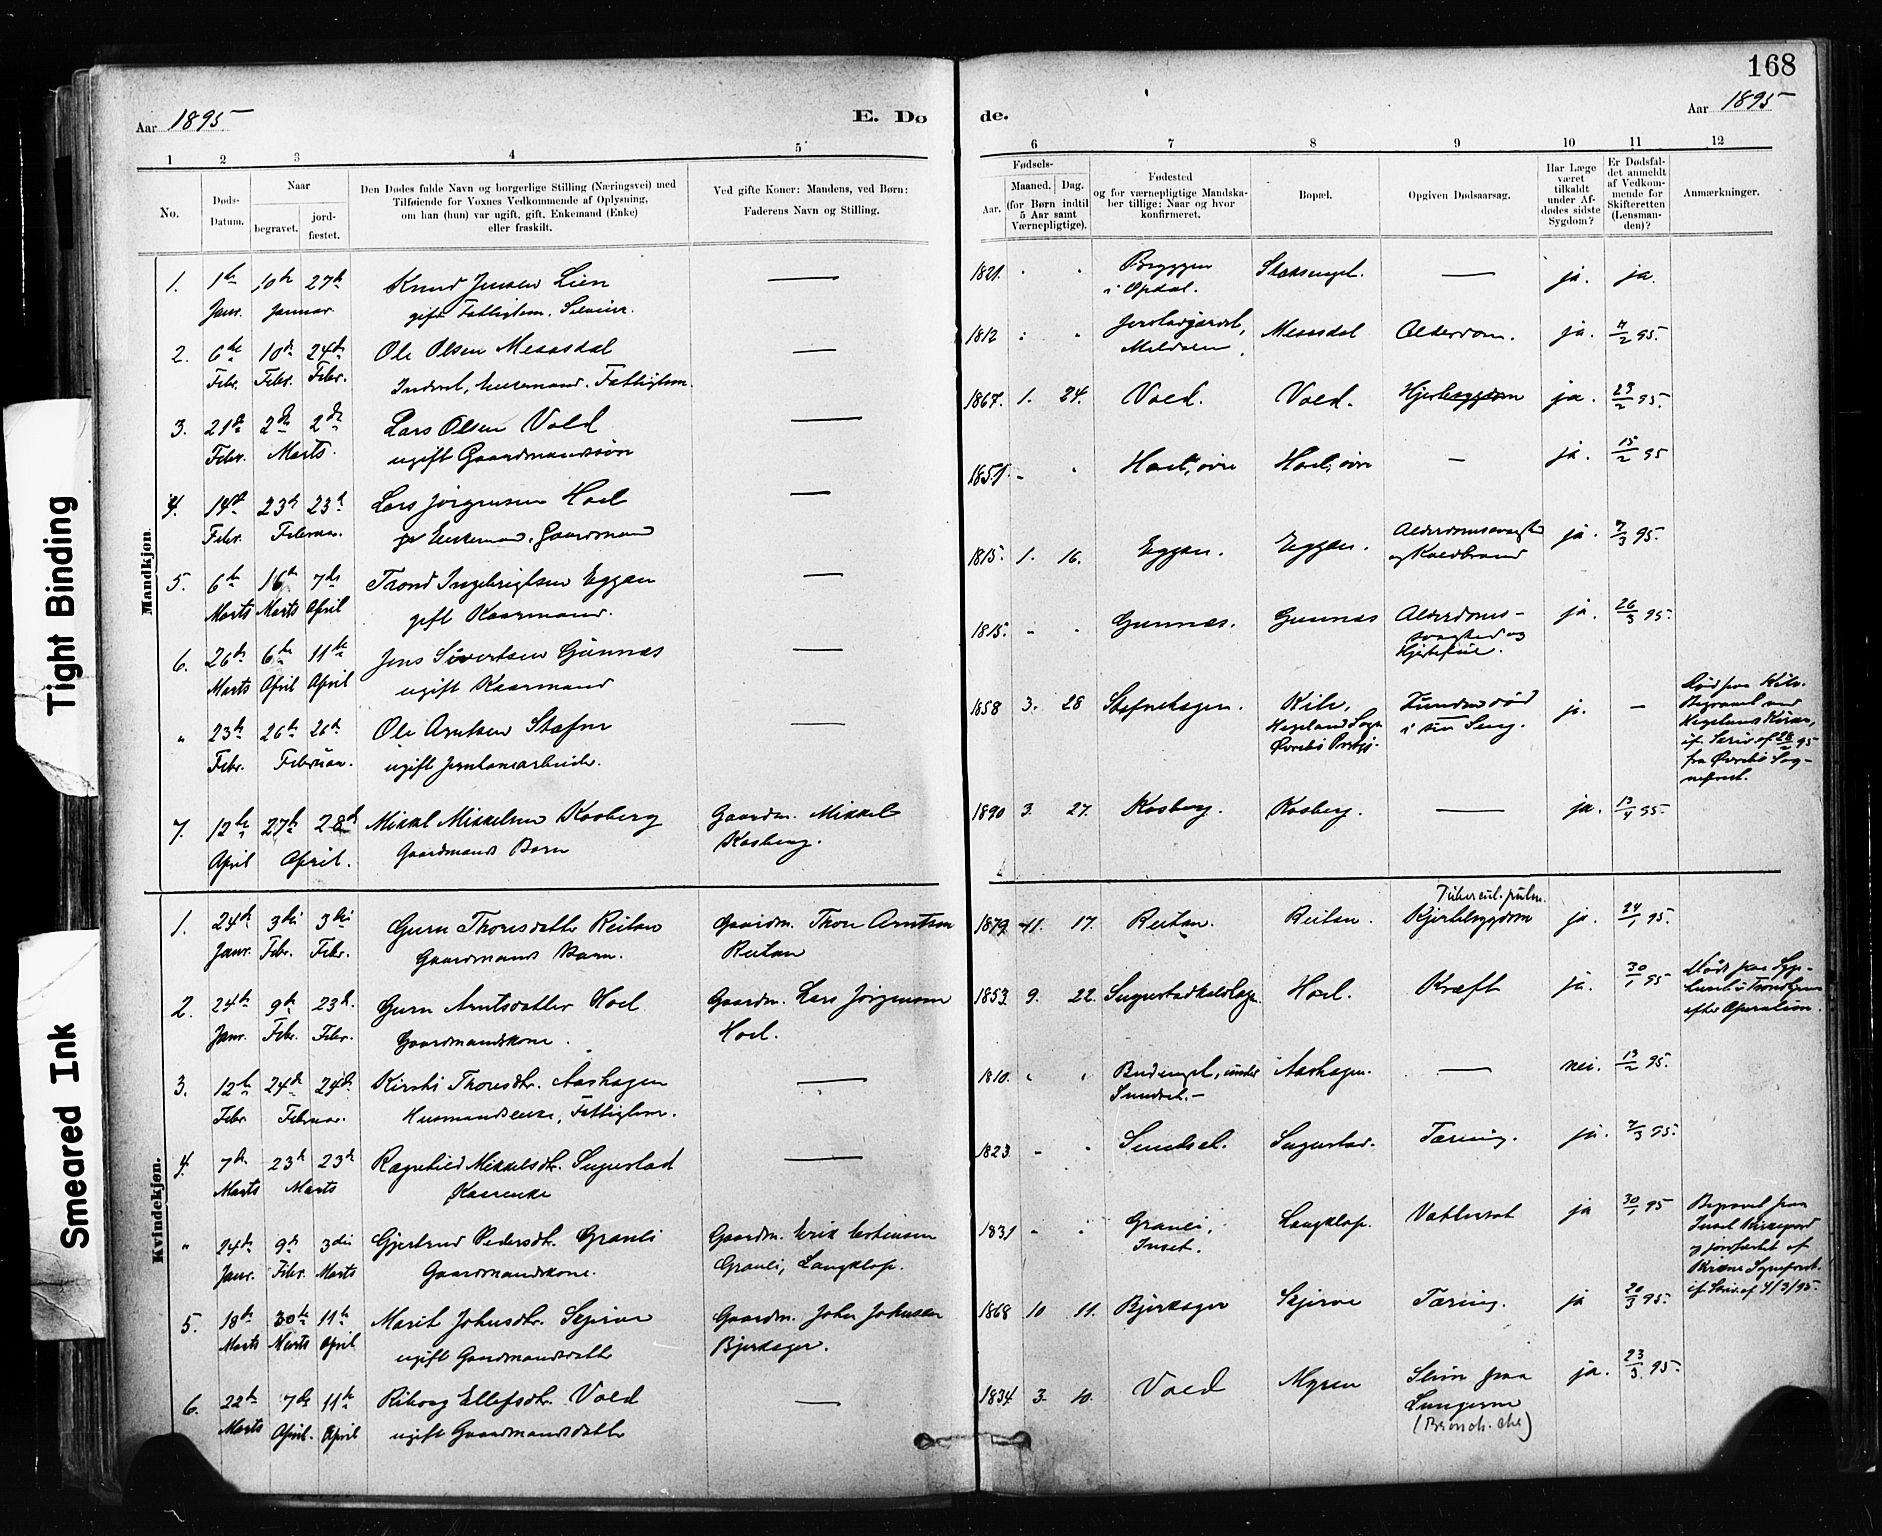 168
Aar 1895
E. Dø
de.
Aar 1895
1 2 3 4 5
6 7 8 9 10 11 12
No.
Døds-Datum.
Naar
begravet.
jord-fæstet.
Den Dødes fulde Navn og borgerlige Stilling (Næringsvei) med
Tilføiende for Voxnes Vedkommende af Oplysning,
om han (hun) var ugift, gift, Enkemand (Enke)
eller fraskilt.
Ved gifte Koner: Mandens, ved Børn:
Faderens Navn og Stilling.
Fødsels-
Aar.
Maaned. Dag.
(for Børn indtil
5 Aar samt
Værnepligtige).
Fødested
og for værnepligtige Mandska-
ber tillige: Naar og hvor
konfirmeret.
Bopæl.
Opgiven Dødsaarsag.
Har Læge
været
tilkaldt
under Af-
dødes sidste
Sygdom?
Er Dødsfal-
det anmeldt
af Vedkom-
mende for
Skifteretten
(Lensman-
den)?
Anmærkninger.
Mandkjøn.
1. 1te 10de 27de Knud Jensen Lien — 1821. Bryggen — ja. ja.
Janr. Januar gift Fattiglem. i Opdal.
2. 6te 10de 24de Ole Olsen Meaasdal — 1812 Meaasdal Alderdom. ja. 95.
Febr. Febr. Febr. Inderst, Enkemand. Fattiglem.
3. 21de 2den 2den Lars Olsen Vold — 1867. 1. 24. Vold. Vold. Hjertesygdom ja. 23/2 95.
Febr. Marts. ugift Gaardmandssøn
4. 14de 23de 23de Lars Jørgensen Hoel — Hoel, øvre Hoel, øvre — ja. 15/2 95
Febr. Februar. Enkemand, Gaardmand
5. 6te 16de 7de Trond Ingebrigtsen Eggan — 1815. 1. 16. Eggan. Eggan. og Koldbrand ja. 7/3 95.
Marts Marts April gift Kaarmand.
6. 26de 6te 11te Jens Sivertsen Gunnæs — 1815. Gunnæs. Gunnæs Alderdoms-
svaghed og
ja. 26/3 95.
Marts April April ugift Kaarmand
" 23de 26de 26de Ole Arntsen Stæfne — 1858 3. 28 Stæfnehagen. Kile, Funden død ja. —
Hægeland Sogn
Øvrebø Prstgj.
i sin Seng.
Febr. Februar. ugift Jernbanearbeider.
Død paa Kile.
Begravet ved
Hægelands Kirke,
if. Skriv. af 28/2 95
fra Øvrebø Sog-
neprest.
7. 12te 27de 28de Mikkel Mikkelsen Kosberg Gaardm. Mikkel 1890 3. 27. Kosberg. Kosberg. — ja. 13/4 95.
April April. Gaardmands Barn Kosberg.
Kvindekjøn.
Tubercul. pulm.
1. 24de 3die 3die Guru Thoresdatter Reitan Gaardm. Thore Arntsen 1879. 11. 17. Reitan. Reitan. Hjertesygdom ja. 24/1 95.
Janr. Febr. Febr. Gaardmands Barn. Reitan
2. 24de 9de 23de Guru Arntsdatter Hoel Gaardm. Lars Jørgensen 1853. 9. 22. Hoel. Kræft ja. 30/1 95
Janr. Febr. Febr. Gaardmandskone. Hoel.
Død paa Syge-
huset i Trondhjem
efter Operation.
3. 12te 24de 24de Kirsti Thoresdtr. Aashagen — 1810. under Aashagen. — nei. 13/2 95.
Febr. Februar. Husmandsenke, Fattiglem. Sundset.-
4. 7de 23de 23de Ragnhild Mikkelsdtr. Sugustad — 1823. Sundset. Sugustad. Tæring. ja. 7/3 95.
Marts Marts Kaarenke
" 24de 9de 3die Gjertrud Pedersdtr. Granli Gaardm. Erik Estensen 1831 Granli, Langklop. Vattersot ja 30/1 95
Janr. Febr. Marts Gaardmandskone. Granli, Langklop. Inset.
Begravet paa
Inset Kirkegaard
og jordfæstet af
if. Skriv. af 4/3/95.
5. 18de 30te 11te Marit Johnsdtr. Skjerve Gaardm. John Johnsen 1868 10 11. Bjerkager Skjerve Tæring. ja 20/3 95.
Marts Marts April ugift Gaardmandsdatter Bjerkager.
6. 22de 7de 11te Riborg Ellefsdtr. Vold — 1834 3. 10. Vold Myren Sliim paa ja. 23/3 95.
Lungerne
(Bronch. chr)
Marts April. April ugift Gaardmandsdatter
Tight Binding
Smeared Ink